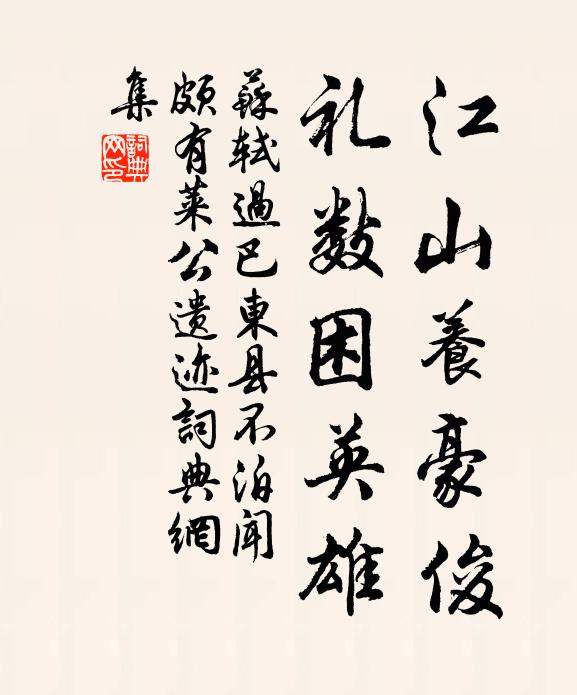 江山養豪俊
礼数困英雄
蘇軾過巴東县不泊聞
頗有萊公遺迹詞典網
集
詞典網印